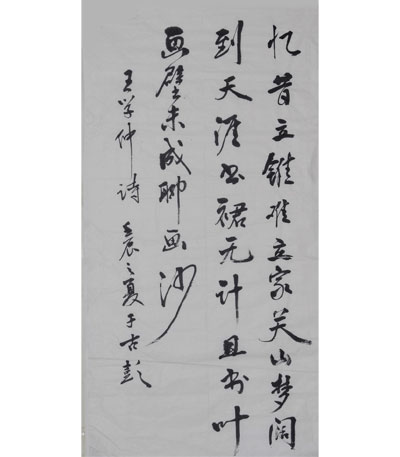 忆昔立锥难立家关山梦阔
到天涯书裙无计且书叶
画壁未成聊画沙
王学仲诗 壬辰之夏于古彭